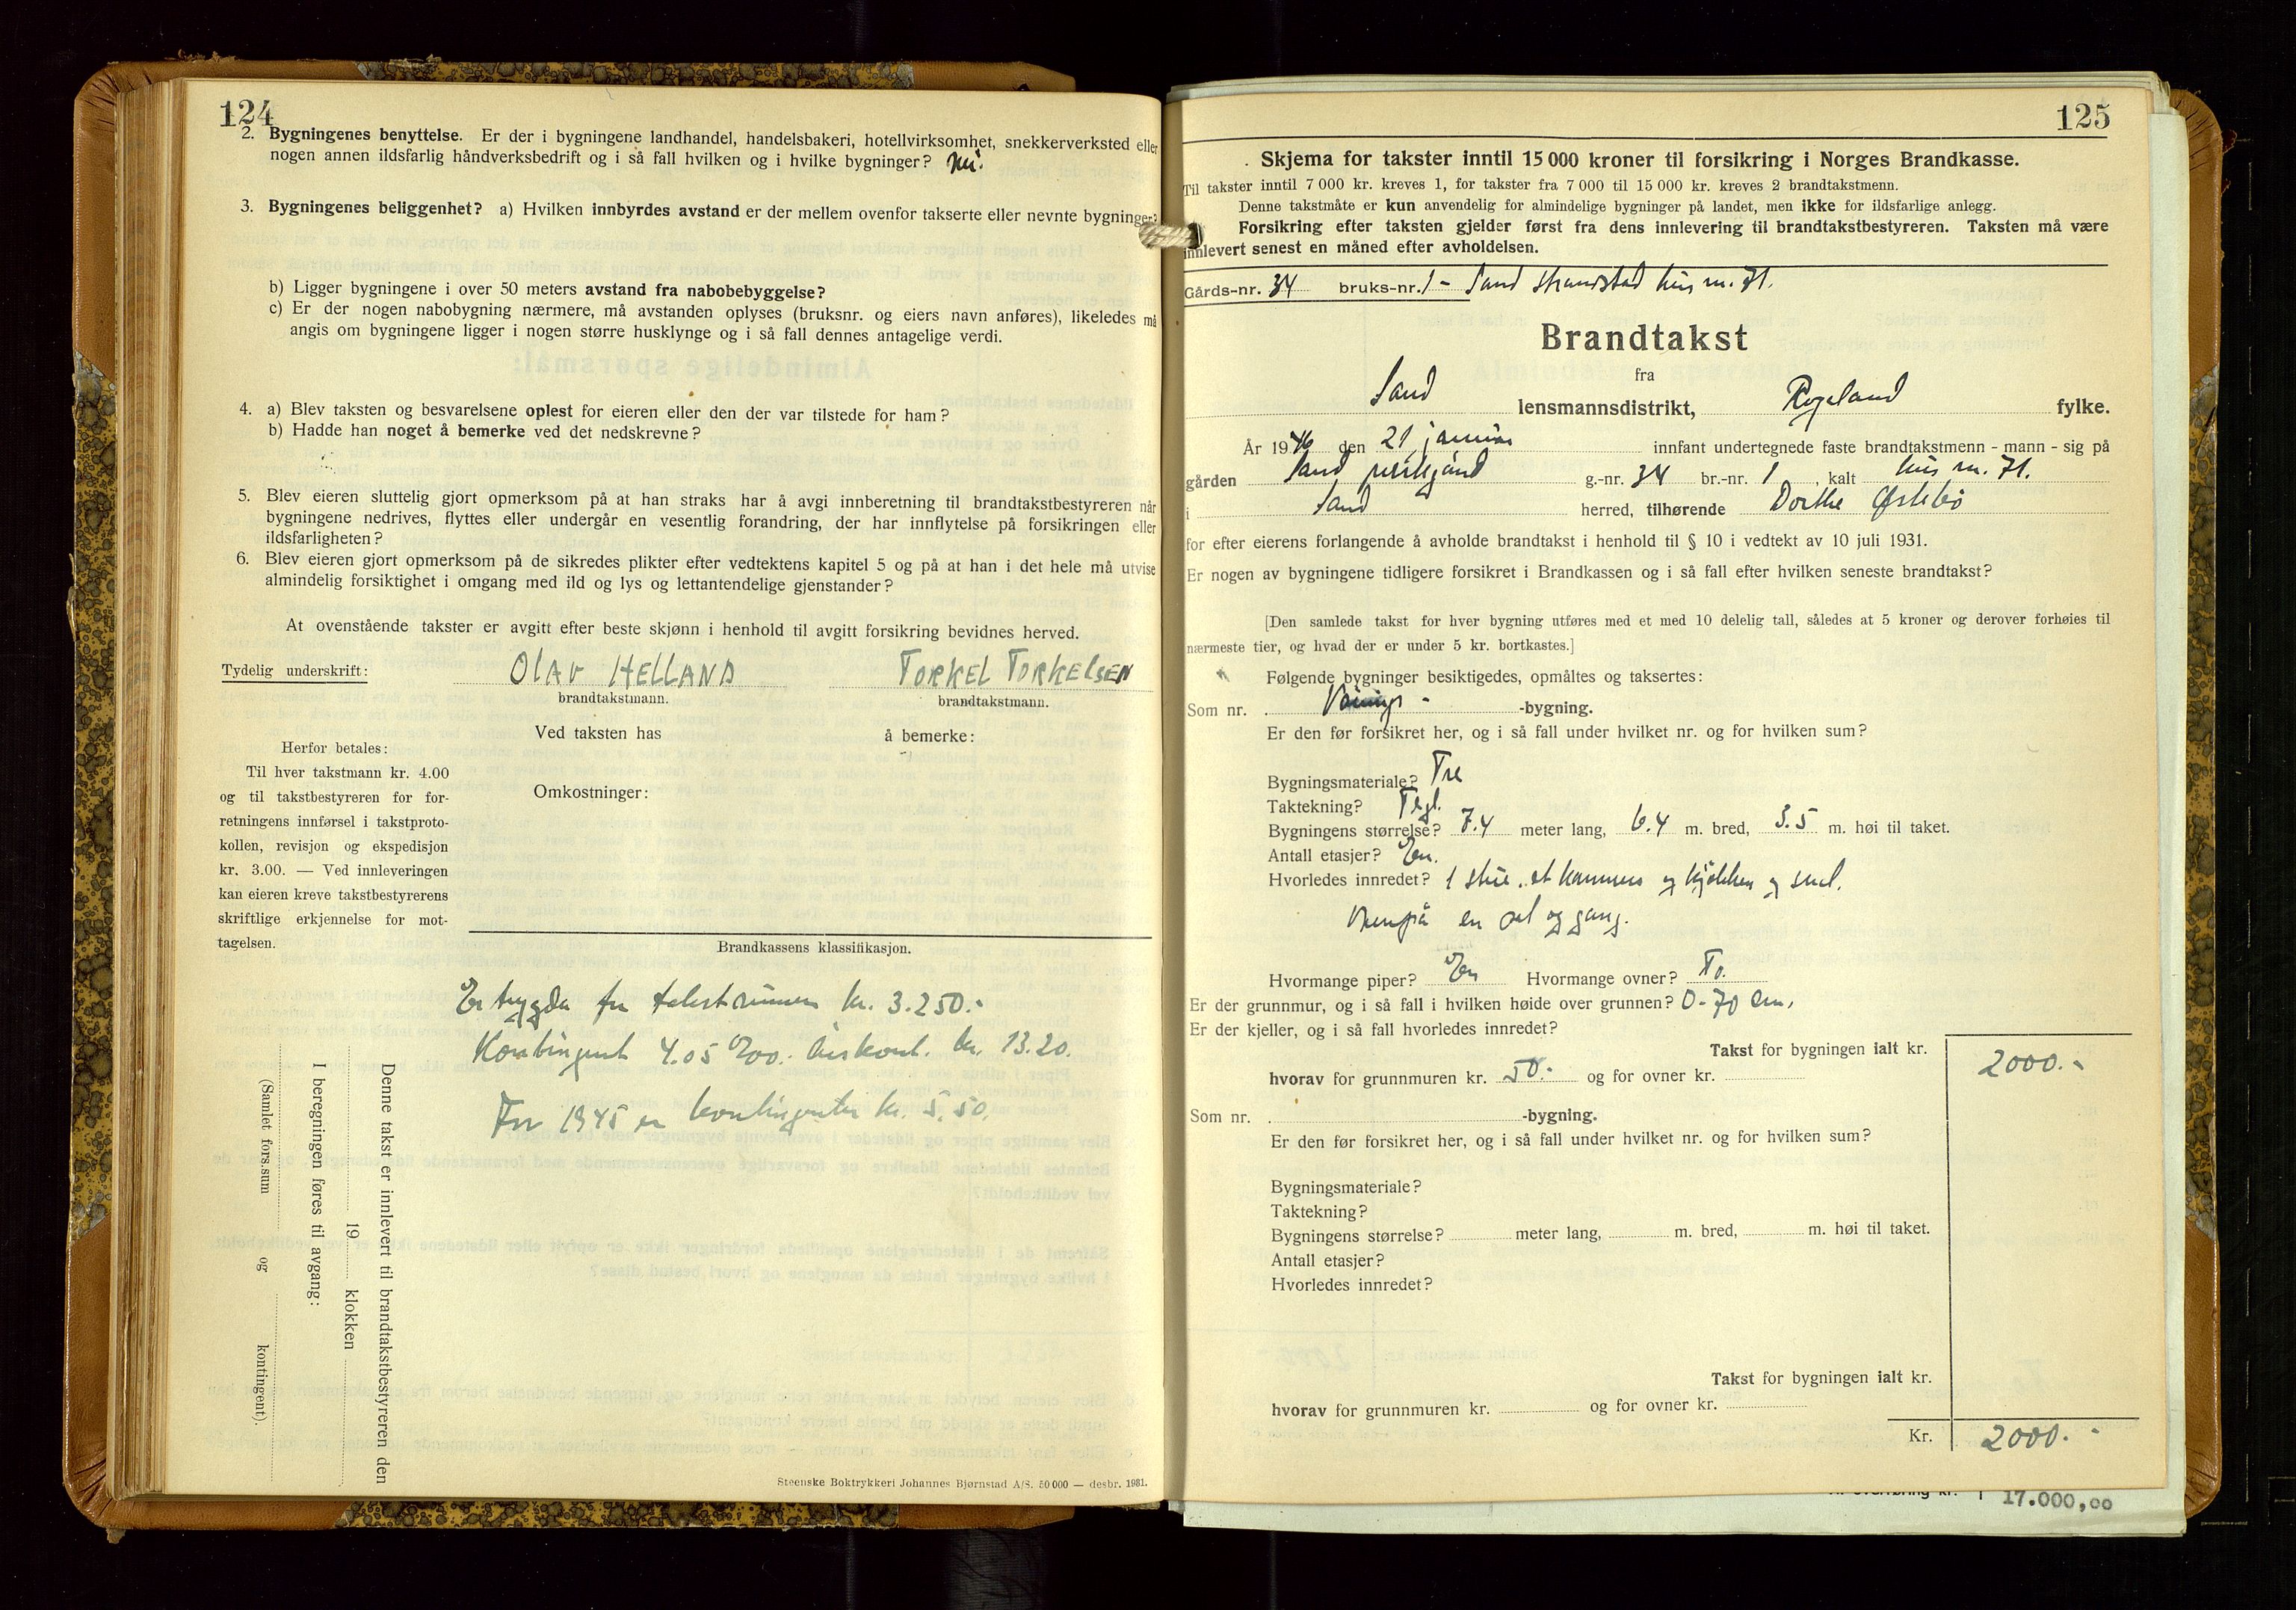 124
2. Bygningenes benyttelse. Er der i bygningene landhandel, handelsbakeri, hotellvirksomhet, snekkerverksted eller
nogen annen ildsfarlig håndverksbedrift og i så fall hvilken og i hvilke bygninger? nei.
3. Bygningenes beliggenhet? a) Hvilken innbyrdes avstand er der mellem ovenfor takserte eller nevnte bygninger?
b) Ligger bygningene i over 50 meters avstand fra nabobebyggelse?
c) Er der nogen nabobygning nærmere, må avstanden oplyses (bruksnr. og eiers navn anføres), likeledes må
angis om bygningene ligger i nogen større husklynge og i så fall dennes antagelige verdi.
4. a) Blev taksten og besvarelsene oplest for eieren eller den der var tilstede for ham?
b) Hadde han noget å bemerke ved det nedskrevne?
5. Blev eieren sluttelig gjort opmerksom på at han straks har å avgi innberetning til brandtakstbestyreren når
bygningene nedrives, flyttes eller undergår en vesentlig forandring, der har innflytelse på forsikringen eller
ildsfarligheten?
6. Blev eieren gjort opmerksom på de sikredes plikter efter vedtektens kapitel 5 og på at han i det hele må utvise
almindelig forsiktighet i omgang med ild og lys og lettantendelige gjenstander?
At ovenstående takster er avgitt efter beste skjønn i henhold til avgitt forsikring bevidnes herved.
Tydelig underskrift: OLAV HELLAND TORKEL TORKELSEN
brandtakstmann. brandtakstmann.
Ved taksten has å bemerke:
Herfor betales:
Til hver takstmann kr. 4.00
og til takstbestyreren for for-
retningens innførsel i takstproto-
kollen, revisjon og ekspedisjon
kr. 3.00. — Ved innleveringen
kan eieren kreve takstbestyrerens
skriftlige erkjennelse for mot-
tagelsen.
Omkostninger:
Brandkassens klassifikasjon.
Er trygda for takstsummen kr. 3.250.-
Kontingent 4.05 ‰. Årskont. kr. 13.20.
For 1945 er kontingenten kr. 5.50.
Denne takst er innlevert til brandtakstbestyreren den
19 klokken
I beregningen føres til avgang:
(Samlet fors.sum og kontingent).
Steenske Boktrykkeri Johannes Bjørnstad A/S. 50 000 — desbr. 1931.
125
Skjema for takster inntil 15 000 kroner til forsikring i Norges Brandkasse.
Til takster inntil 7 000 kr. kreves 1, for takster fra 7 000 til 15 000 kr. kreves 2 brandtakstmenn.
Denne takstmåte er kun anvendelig for almindelige bygninger på landet, men ikke for ildsfarlige anlegg.
Forsikring efter taksten gjelder først fra dens innlevering til brandtakstbestyreren. Taksten må være
innlevert senest en måned efter avholdelsen.
Gårds-nr. 34 bruks-nr. 1 - Sand strandstad hus nr. 71.
Brandtakst
fra
Sand lensmannsdistrikt, Rogaland fylke.
År 1946 den 21 januar innfant undertegnede faste brandtakstmenn - mann - sig på
gården Sand prestegård g.-nr. 34 br.-nr. 1, kalt hus nr. 71.
i Sand herred, tilhørende Dorthe Østebø
for efter eierens forlangende å avholde brandtakst i henhold til § 10 i vedtekt av 10 juli 1931.
Er nogen av bygningene tidligere forsikret i Brandkassen og i så fall efter hvilken seneste brandtakst?
[Den samlede takst for hver bygning utføres med et med 10 delelig tall, således at 5 kroner og derover forhøies til
nærmeste tier, og hvad der er under 5 kr. bortkastes.]
Følgende bygninger besiktigedes, opmåltes og taksertes:
Som nr. Vånings- -bygning.
Er den før forsikret her, og i så fall under hvilket nr. og for hvilken sum?
Bygningsmateriale? Tre
Taktekning? Tegl.
Bygningens størrelse? 7.4 meter lang, 6.4 m. bred, 3.5 m. høi til taket.
Antall etasjer? En.
Hvorledes innredet? 1 stue, et kammers og kjøkken og
en og gang.
Hvormange piper? En Hvormange ovner? To.
Er der grunnmur, og i så fall i hvilken høide over grunnen? 0-70 cm.
Er der kjeller, og i så fall hvorledes innredet?
Takst for bygningen ialt kr. 2000.-
hvorav for grunnmuren kr. 50.- og for ovner kr.
Som nr. -bygning.
Er den før forsikret her, og i så fall under hvilket nr. og for hvilken sum?
Bygningsmateriale?
Taktekning?
Bygningens størrelse? meter lang, m. bred, m. høi til taket.
Antall etasjer?
Hvorledes innredet?
Takst for bygningen ialt kr.
hvorav for grunnmuren kr. og for ovner kr.
Kr. 2000.-
17.000,00